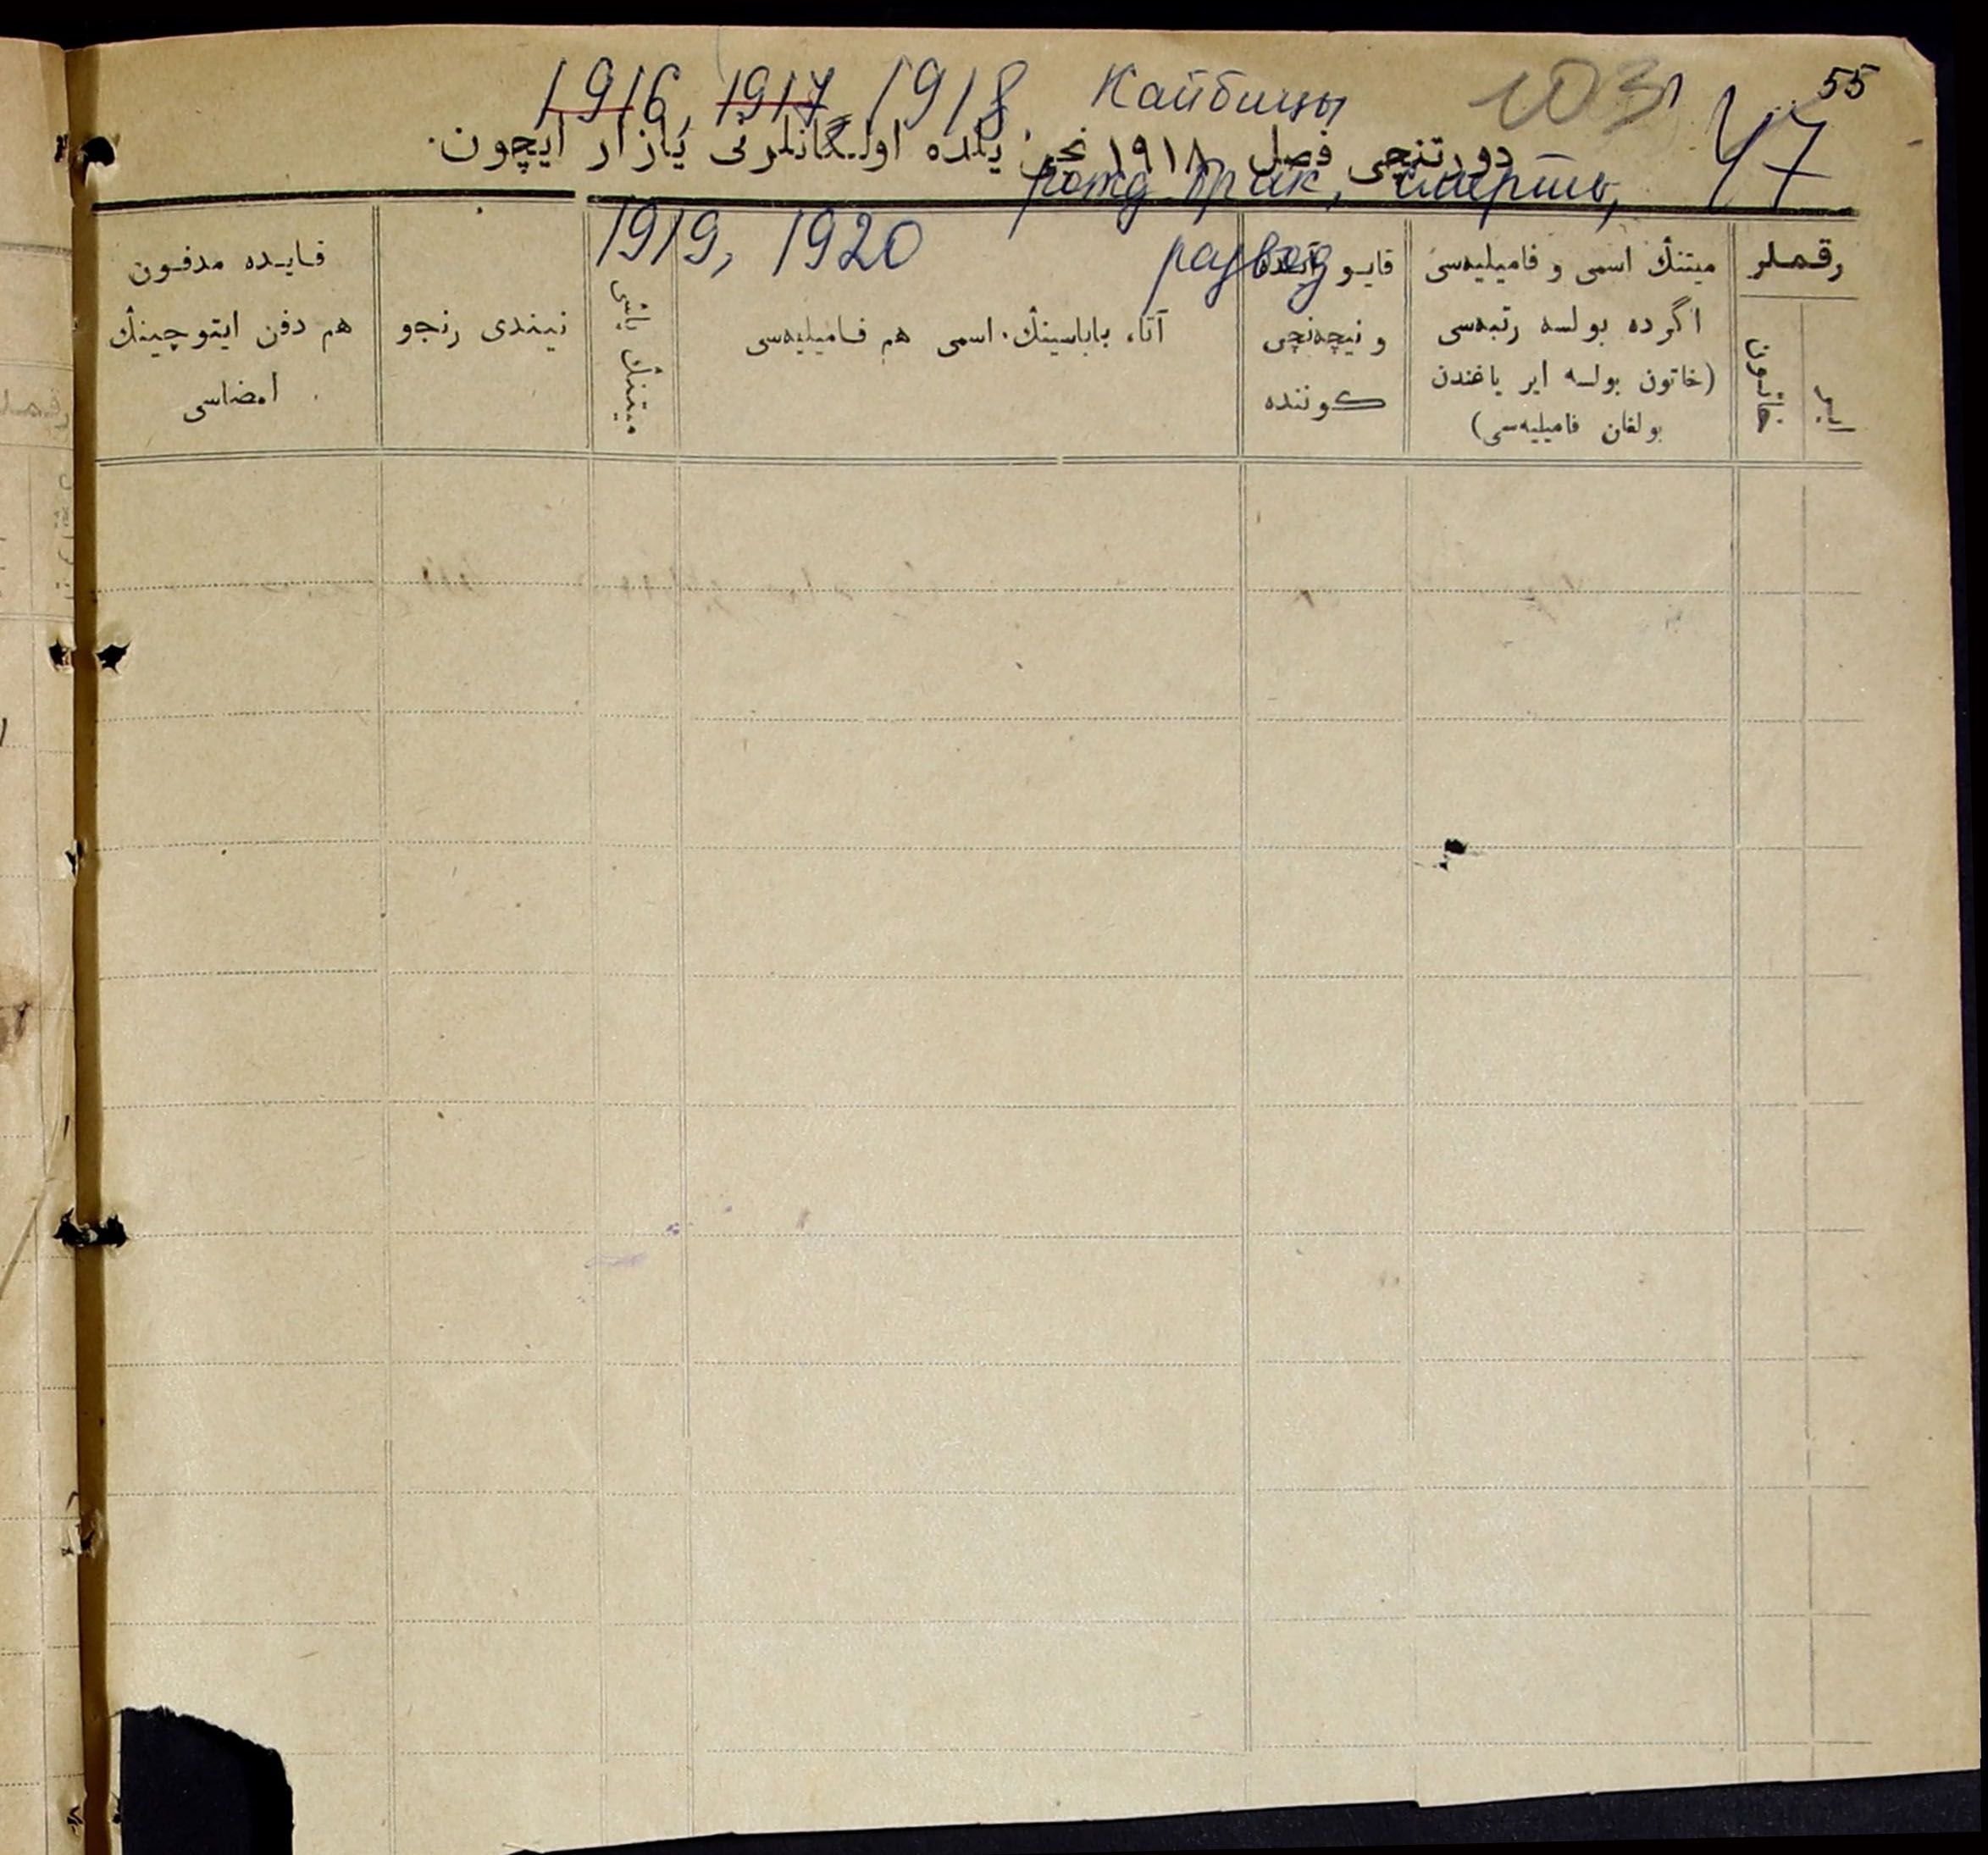 55
1916, 1917, 1918. Кайбицы 103
47
دورتنچی فصل ١٩١٨ نچی یلده اولگانلرنی یازار ایچون.
рожд. брак, смерть,
1919, 1920 развод
رقملر
ایر
خاتون
میتنڭ اسمی و فامیلیه‌سی
اگرده بولسه رتبه‌سی
(خاتون بولسه ایر یاغندن
بولغان فامیلیه‌سی)
قایو آیده
و نیچه‌نچی
کوننده
آتا، باباسینڭ اسمی هم فامیلیه‌سی
میتنڭ یاشی
نیندی رنجو
قایده مدفون
هم دفن ایتوچینڭ
امضاسی